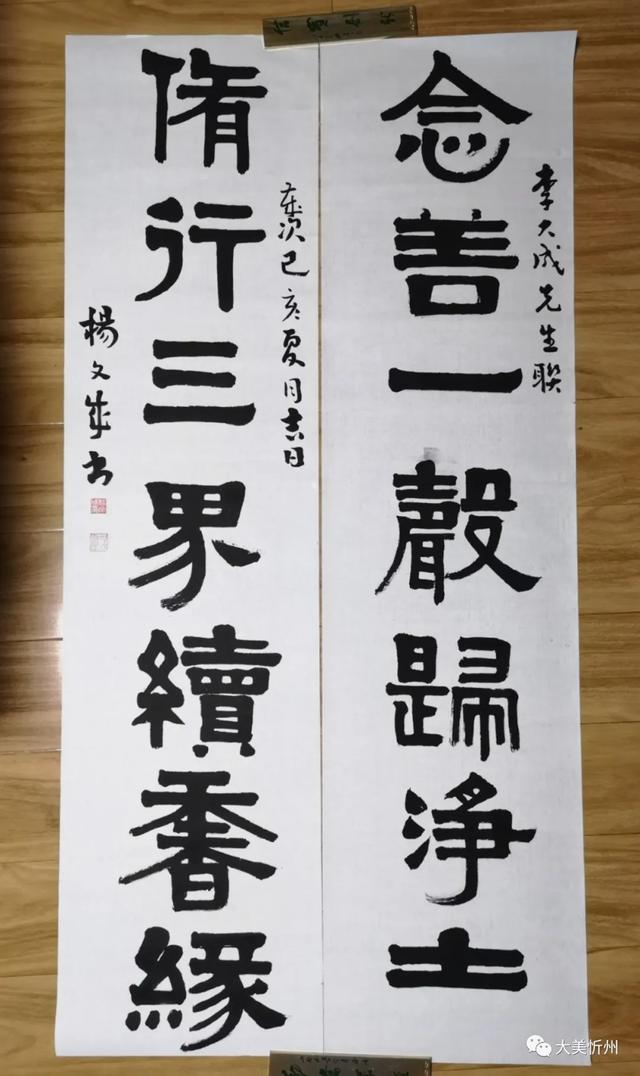 念善一聲歸淨土
李大成先生联
脩行三界續香緣
歲次己亥夏月吉日
楊文成书
大美忻州